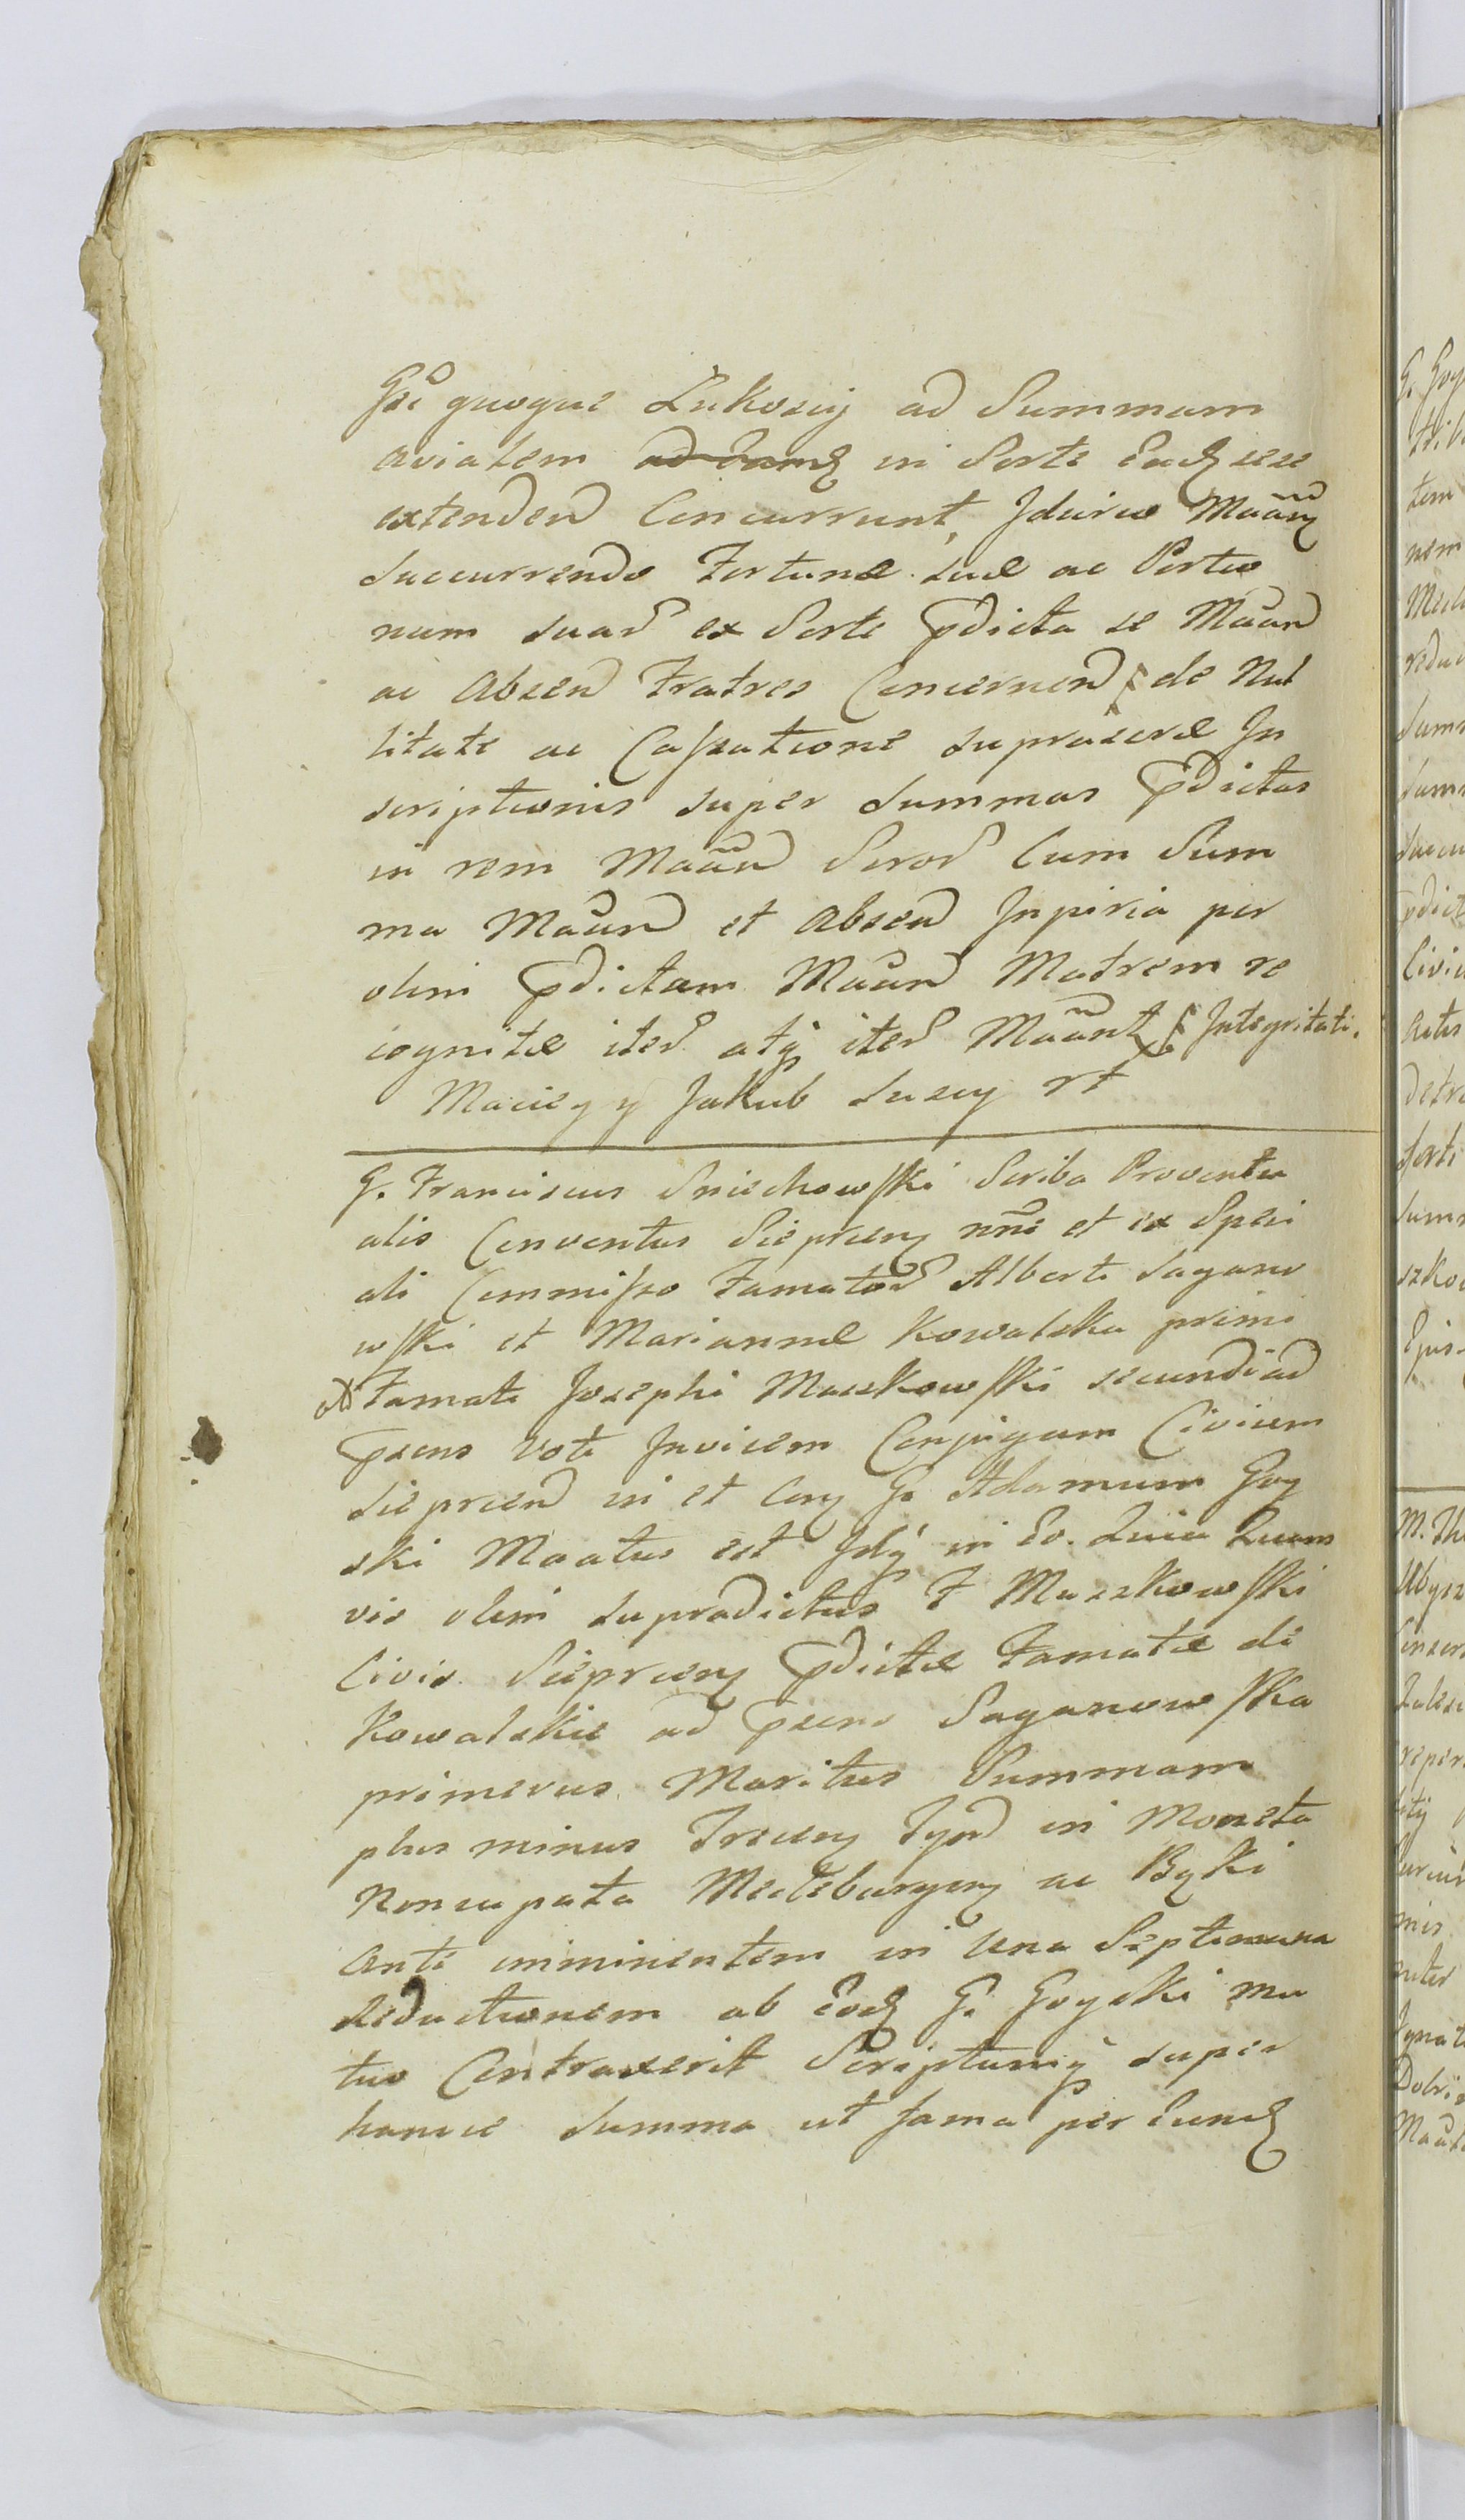 Gsi quoque Łukosij ad Summam
aviatem ad eamq in Sorte Eadq sese
extendend Concurrunt, Idcirco Maanq
succurrendo Fortunæ suæ ac Portio
num suar ex Sorte pdicta se Maan
ac Absen Fratres Concernen de Nul
litate ac Cassatione supraseræ In
scriptionis super Summas pdictas
in rem Maan Soror Cum Sum
ma Maan et Absen Inpiria per
olim pdictam Maan Matrem re
cognitæ iter atq iter Maant Integritati.
Maciey y Jakub Suscy rt
G. Franciscus Sniechowski Scriba Proventu
alis Conventus Sieprcen nne et ex Speci
ali Commisso Famator Alberti Sagano
wski et Mariannæ Kowalska primi
Famati Josephi Maszkowski secundi ad
psens voti Invicem Conjugum Civium
Sieprcen in et con G. Adamum Goy
ski Maatus est Idq in Eo. Quia Quam
vis olim supradictus F Maszkowski
Civis Sieprcen pdictæ Famatæ de
Kowalskie ad psens Saganowska
primevus Maritus Summam
plus minus Trecen Tynf in Moneta
Noncupata Mecleburgen ac Bąki
Ante imminentem in Una Septemana
Reductionem ab Eodq G. Goyski mu
tuo Contraxerit Scriptumq super
hancce Summa ut fama per Eundq